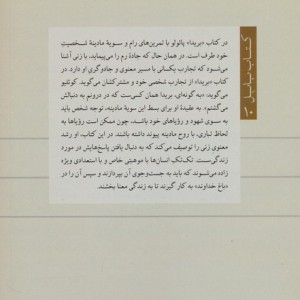 در کتاب «بریدا» پائولو با تمرین‌های رام و سویهٔ مادینهٔ شخصیتِ
خود طرف است. در همان حال که جادهٔ رم را می‌پیماید، با زنی آشنا
می‌شود که تجارب یکسانی با مسیر معنوی و جادوگری او دارد. در
کتاب «بریدا» از تجارب شخص خود و مشترکشان می‌گوید. کوئلیو
می‌گوید، «به گونه‌ای، بریدا همان کسی‌ست که در درونم به دنبالش
می‌گشتم». به عقیدهٔ او برای بسط این سویهٔ مادینه، توجه شخص باید
به سوی شهود و رؤیاهای خود باشد، چون ممکن است رؤیاها به
لحاظ تباری، با روح مادینه پیوند داشته باشند. در این کتاب، او رشد
معنوی زنی را توصیف می‌کند که به دنبال یافتن پاسخ‌هایش در مورد
زندگی‌ست. تک‌تکِ انسان‌ها با موهبتی خاص و با استعدادی ویژه
زاده می‌شوند که باید به جست‌وجوی آن بپردازند و سپس آن را در
«باغ خداوند» به کار گیرند تا به زندگی معنا بخشند.